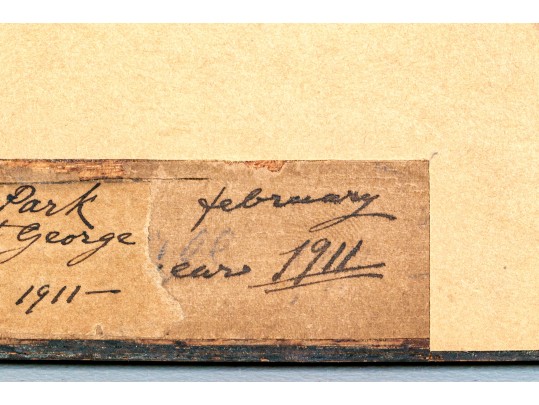 Park
George
1911—
February
ear 1911